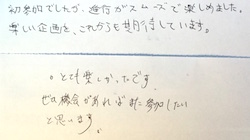 初参加でしたが、進行がスムーズで楽しめました。
楽しい企画を、これからも期待しています。
。とても楽しかったです。
ぜひ機会があればまた参加したい
と思います。